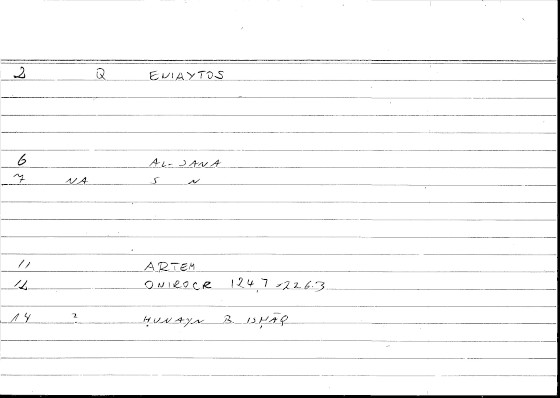 2 Q ENIAYTOS
6 AL-SANA
7 NA S N
11 ARTEM
12 ONIROCR 124,7-226.3
14 ? ḤUNAYN B ISḤĀQ